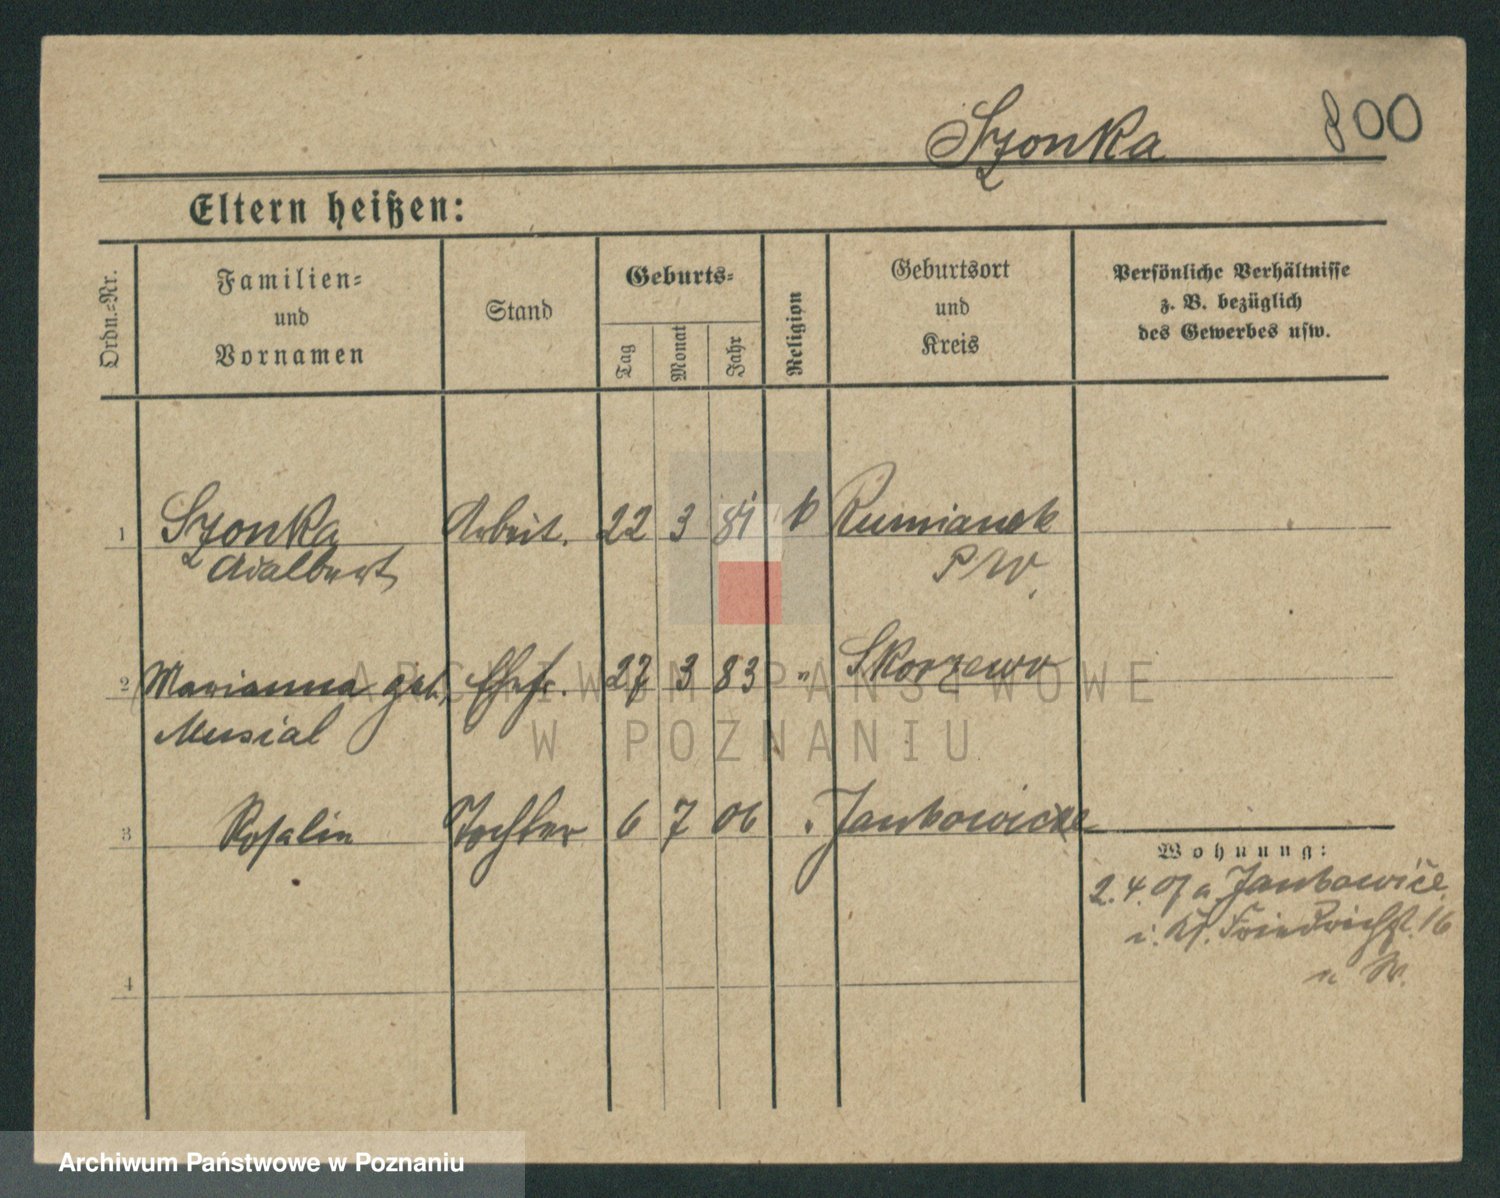 Szonka
800
Eltern heißen:
Ordn.=Nr.
Familien=
und
Vornamen
Stand
Geburts=
Tag
Monat
Jahr
Religion
Geburtsort
und
Kreis
Persönliche Verhältnisse
z. B. bezüglich
des Gewerbes usw.
1 Szonka Arbeit. 22 3 81 k Rumianek
Adalbert P W.
2 Marianna geb. Ehefr. 27 3 83 " Skorzewo
Musial
3 Rosalie Tochter 6 7 06 " Jankowicze
Wohnung:
2.4.07 a. Jankowice
i. Friedrichst. 16
n. W.
4
ARCHIWUM PAŃSTWOWE
W POZNANIU
Archiwum Państwowe w Poznaniu